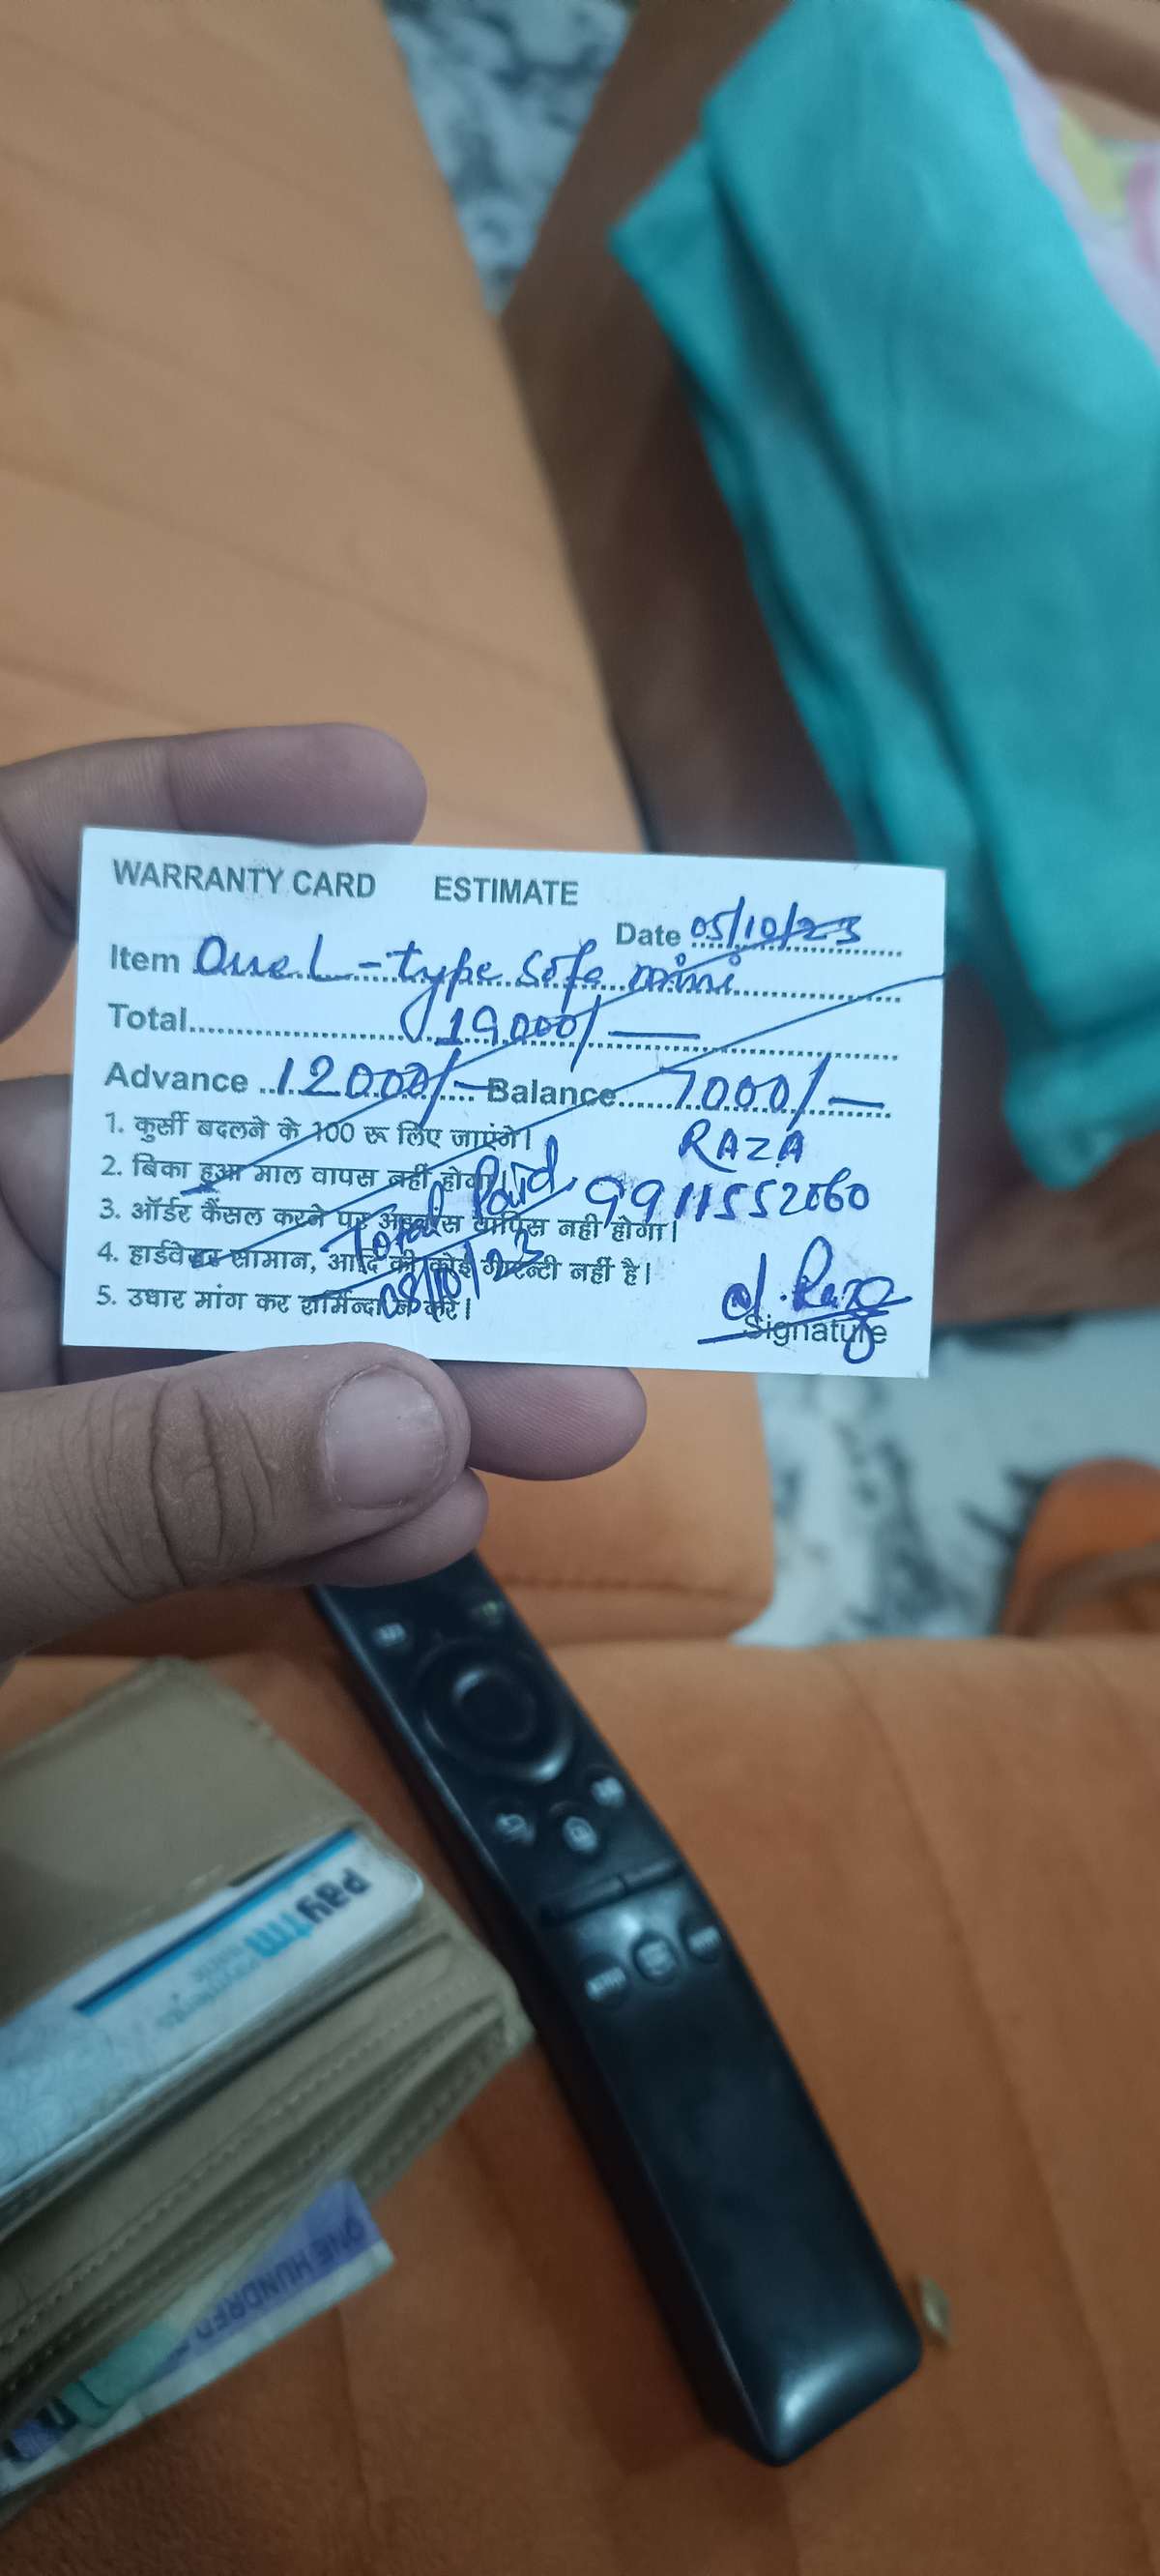 WARRANTY CARD ESTIMATE
Date 05/10/23
Item One L-type Sofa mini
Total 19000/-
Advance 12000/- Balance 7000/-
1. कुर्सी बदलने के 100 रू लिए जाएंगे।
RAZA
2. बिका हुआ माल वापस नहीं होगा।
Total Paid
9911552060
3. ऑर्डर कैंसल करने पर अडवांस वापिस नही होगा।
4. हार्डवेयर सामान, आदि की कोई गारन्टी नहीं है।
08/10/23
5. उधार मांग कर शर्मिन्दा न करें।
Raza
Signature
paytm
ONE HUNDRED